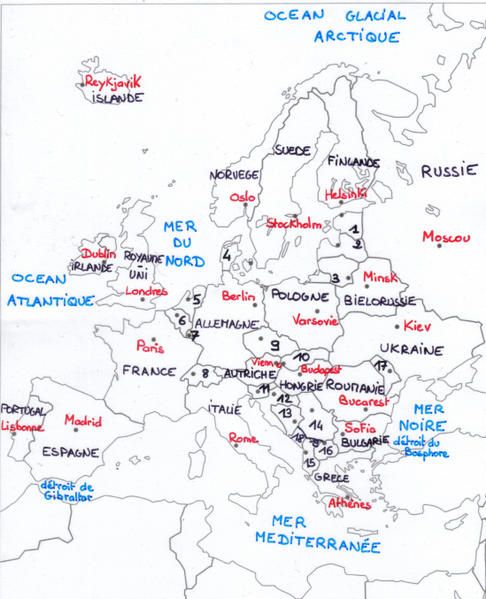 OCEAN GLACIAL
ARCTIQUE
Reykjavik
ISLANDE
SUEDE
FINLANDE
NORVEGE
RUSSIE
Oslo
Helsinki
Stockholm
1
2
MER
DU
NORD
4
Moscou
Dublin
IRLANDE
ROYAUME
UNI
OCEAN
ATLANTIQUE
Londres
5
Berlin
3
Minsk
POLOGNE
BIELORUSSIE
Varsovie
6
7
ALLEMAGNE
Kiev
UKRAINE
Paris
FRANCE
9
10
Vienne
Budapest
17
8
AUTRICHE
HONGRIE
ROUMANIE
11
12
Bucarest
PORTUGAL
Lisbonne
Madrid
ESPAGNE
ITALIE
13
14
Sofia
BULGARIE
MER
NOIRE
détroit du
Bosphore
Rome
18
16
15
GRECE
Athènes
détroit de
Gibraltar
MER
MEDITERRANÉE